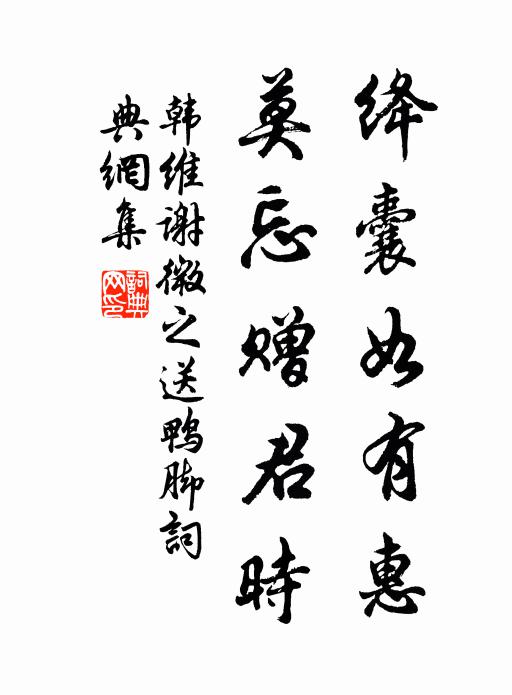 绛囊如有惠
莫忘赠君時
韩维谢微之送鸭脚詞
典網集
詞典网印